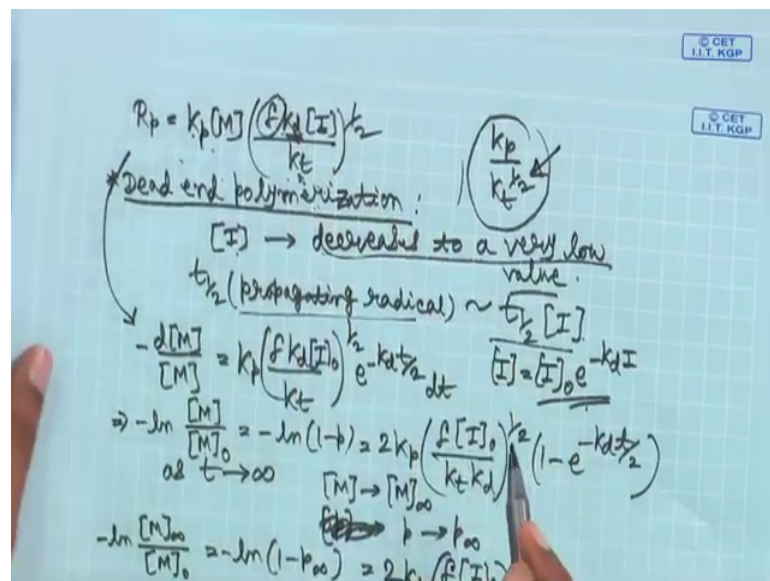 © CET
I.I.T. KGP
© CET
I.I.T. KGP
Rp = kp[M] (f kd[I] / kt)^1/2
kp / kt^1/2
*Dead end polymerization :
[I] → decreases to a very low value.
t1/2 (propagating radical) ~ t1/2 [I]
[I] = [I]0 e^-kdI
-d[M]/[M] = kp (f kd[I]0 / kt)^1/2 e^-kdt/2 dt
⇒ -ln [M]/[M]0 = -ln(1-p) = 2kp (f[I]0 / kt kd)^1/2 (1-e^-kdt/2)
as t→∞
[M] → [M]∞
p → p∞
-ln [M]∞/[M]0 = -ln(1-p∞) = 2k (f[I]